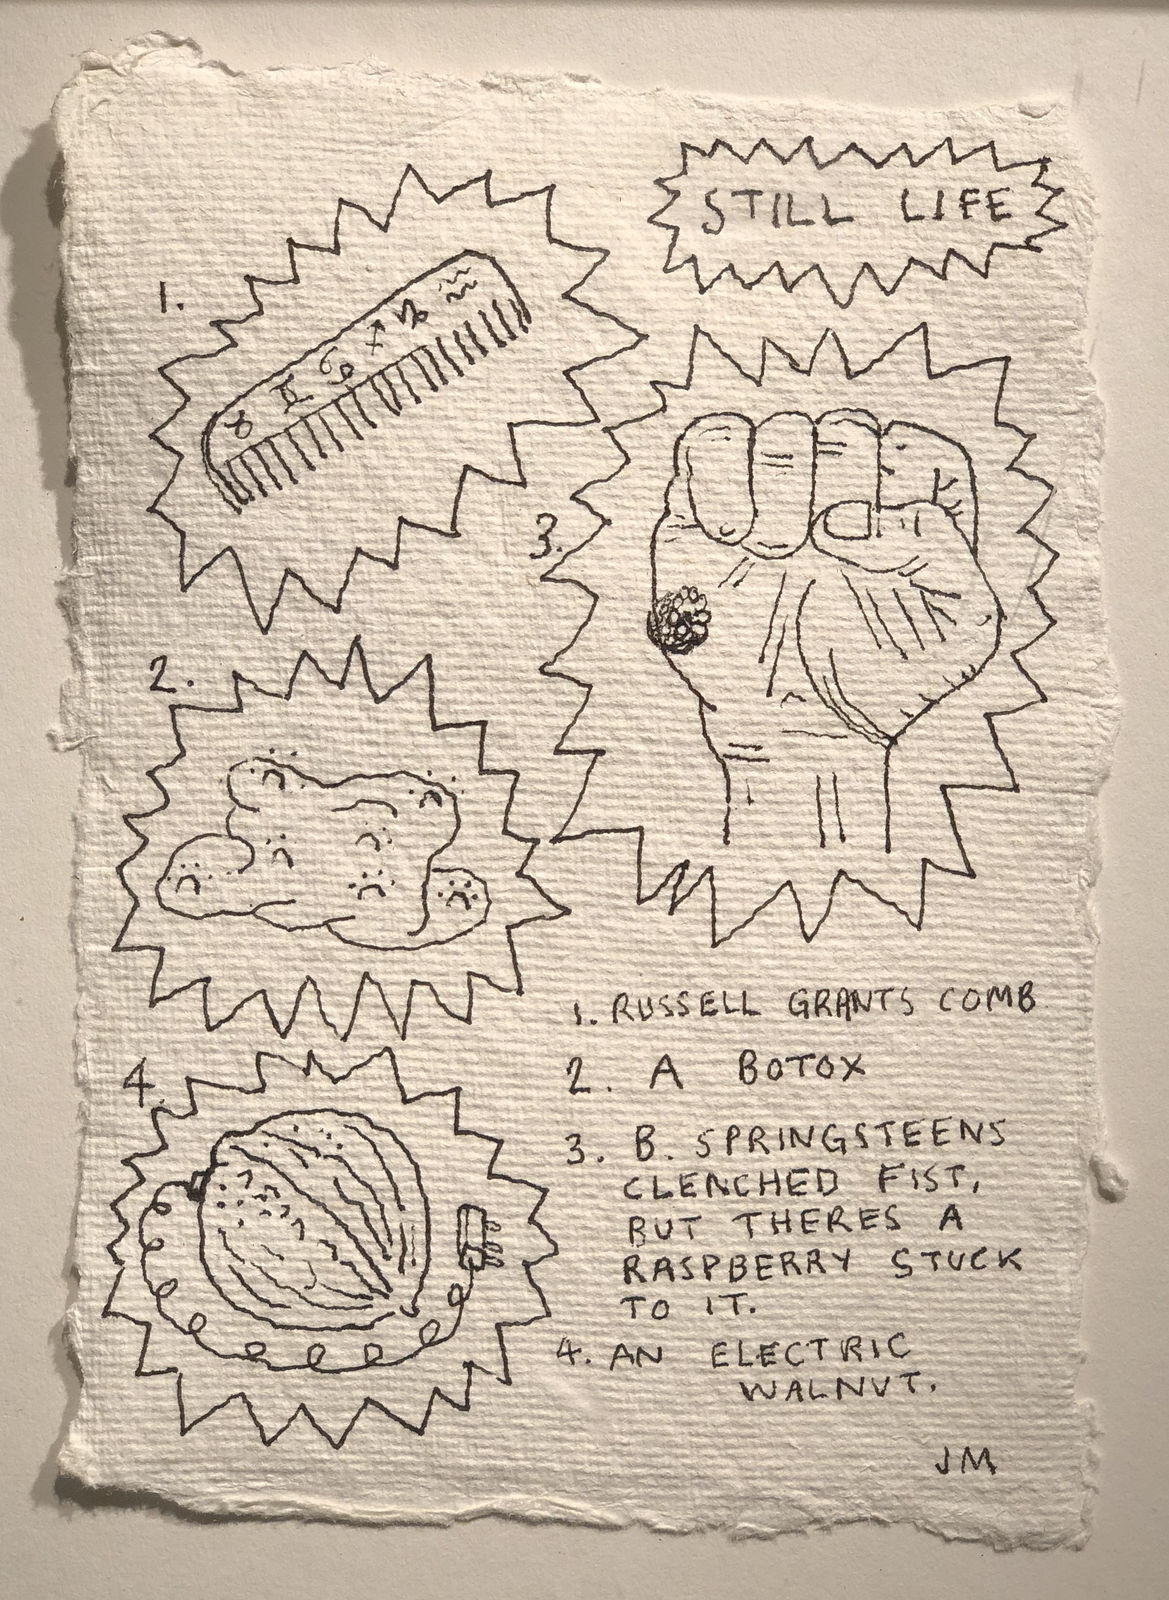 STILL LIFE
1.
3.
2.
4.
1. RUSSELL GRANTS COMB
2. A BOTOX
3. B. SPRINGSTEENS
CLENCHED FIST,
BUT THERES A
RASPBERRY STUCK
TO IT.
4. AN ELECTRIC
WALNUT.
JM